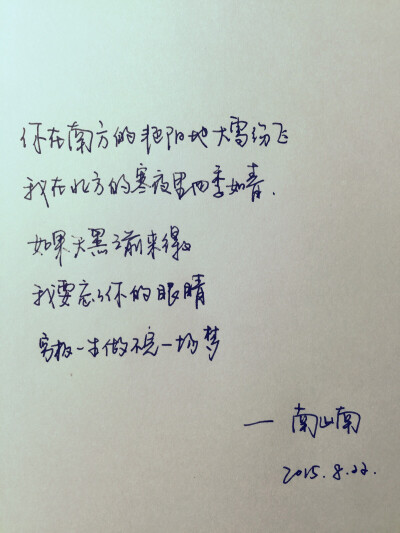 你在南方的艳阳地大雪纷飞
我在北方的寒夜里四季如青.
如果天黑之前来得及
我要忘了你的眼睛
穷极一生做不完一场梦
— 南山南
2015.8.22.